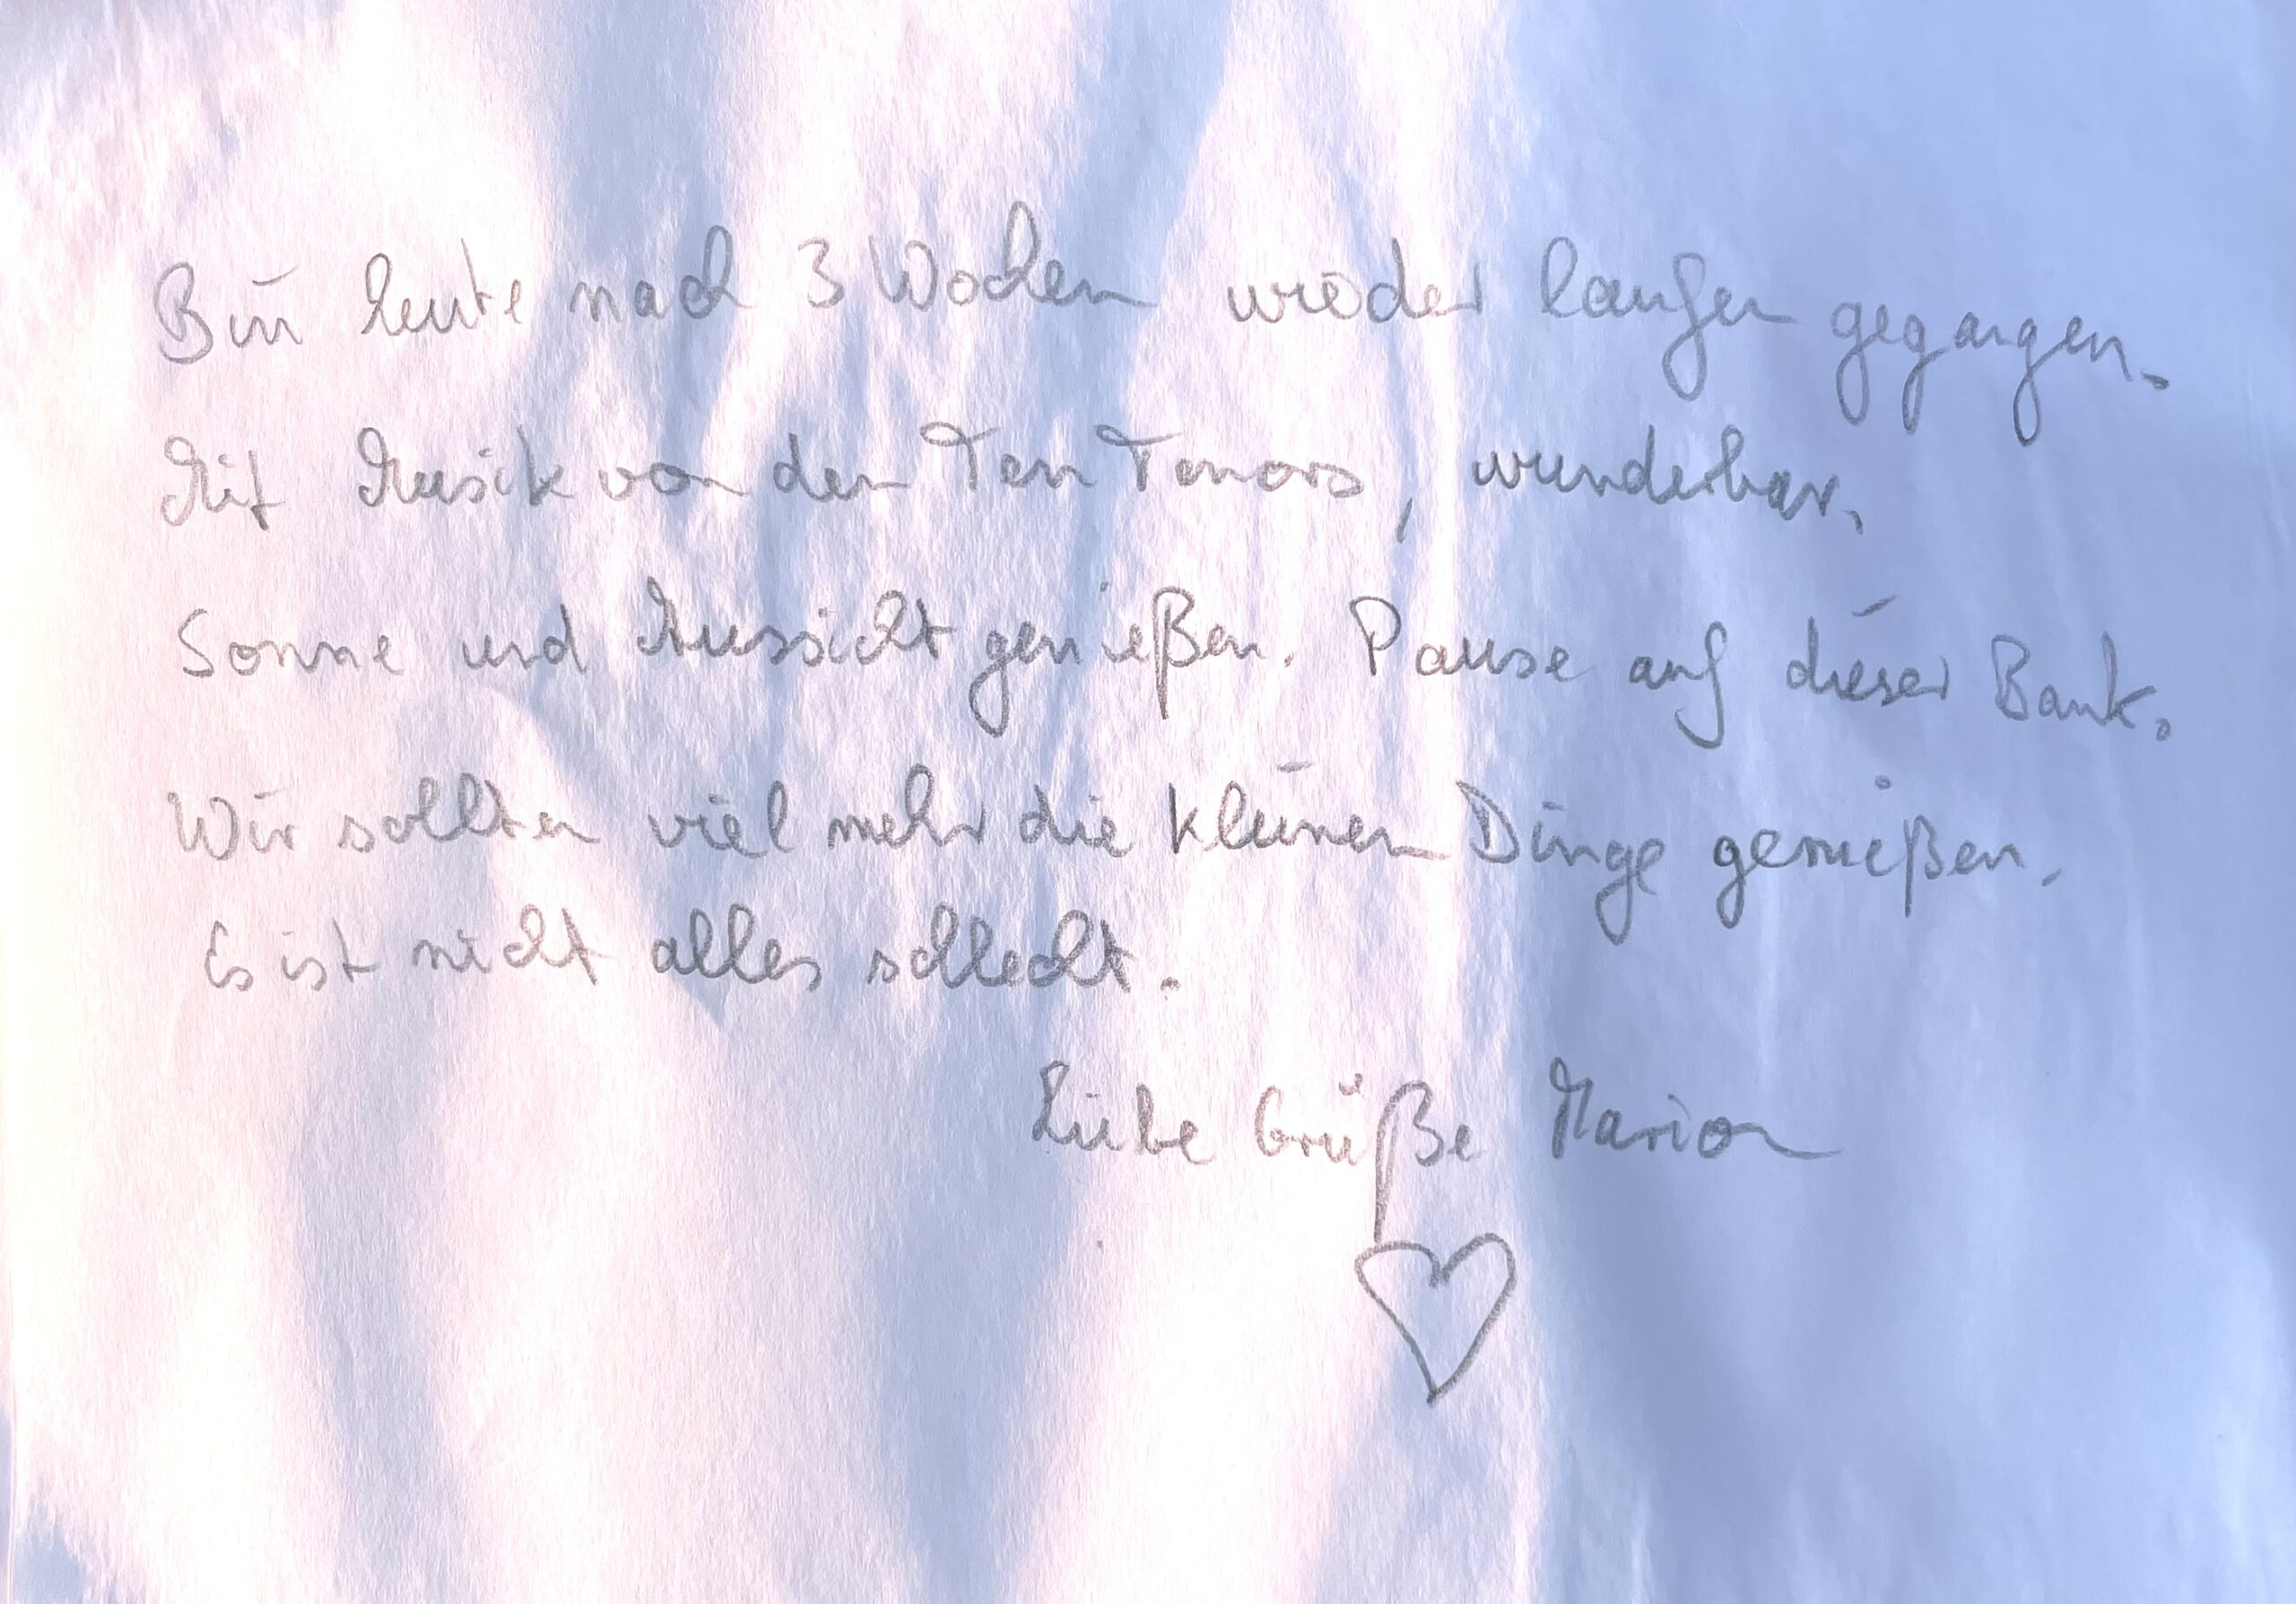 Bin heute nach 3 Wochen wieder laufen gegangen.
Mit Musik von den Ten Tenors, wunderbar.
Sonne und Aussicht genießen. Pause auf dieser Bank.
Wir sollten viel mehr die kleinen Dinge genießen.
Es ist nicht alles schlecht.
Liebe Grüße Marion